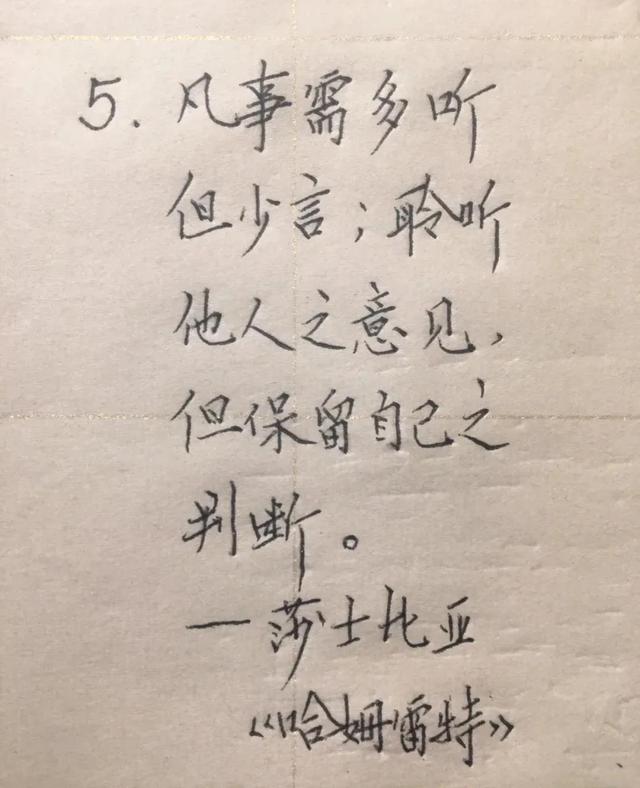 5. 凡事需多听
但少言；聆听
他人之意见，
但保留自己之
判断。
—莎士比亚
《哈姆雷特》